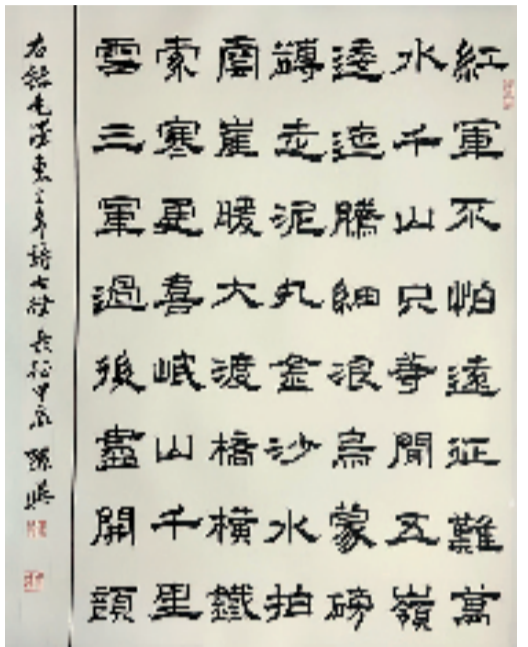 紅軍不怕遠征難萬
水千山只等閒五嶺
逶迤騰細浪烏蒙磅
礴走泥丸金沙水拍
雲崖暖大渡橋橫鐵
索寒更喜岷山千里
雪三軍過後盡開顏
右錄毛澤東主席詩七律長征甲辰